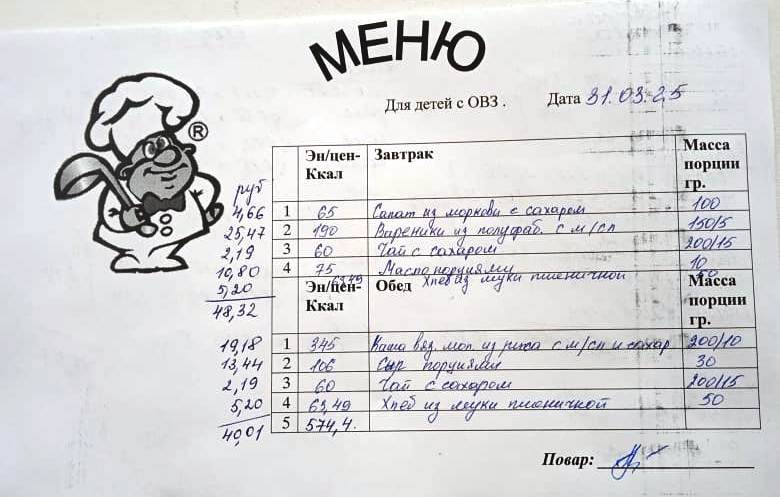 МЕНЮ
Для детей с ОВЗ . Дата 31.03.25
®
руб Эн/цен-Ккал Завтрак Масса порции гр.
4,66 1 65 Салат из моркови с сахаром 100
25,47 2 190 Вареники из полуфаб. с м/сл 150/5
2,19 3 60 Чай с сахаром 200/15
10,80 4 75 Масло порциями 10
5,20 63,49 Хлеб из муки пшеничной 50
48,32 Эн/цен-Ккал Обед Масса порции гр.
19,18 1 345 Каша вяз. мол. из риса с м/сл и сахар 200/10
13,44 2 106 Сыр порциями 30
2,19 3 60 Чай с сахаром 200/15
5,20 4 63,49 Хлеб из муки пшеничной 50
40,01 5 574,4.
Повар: